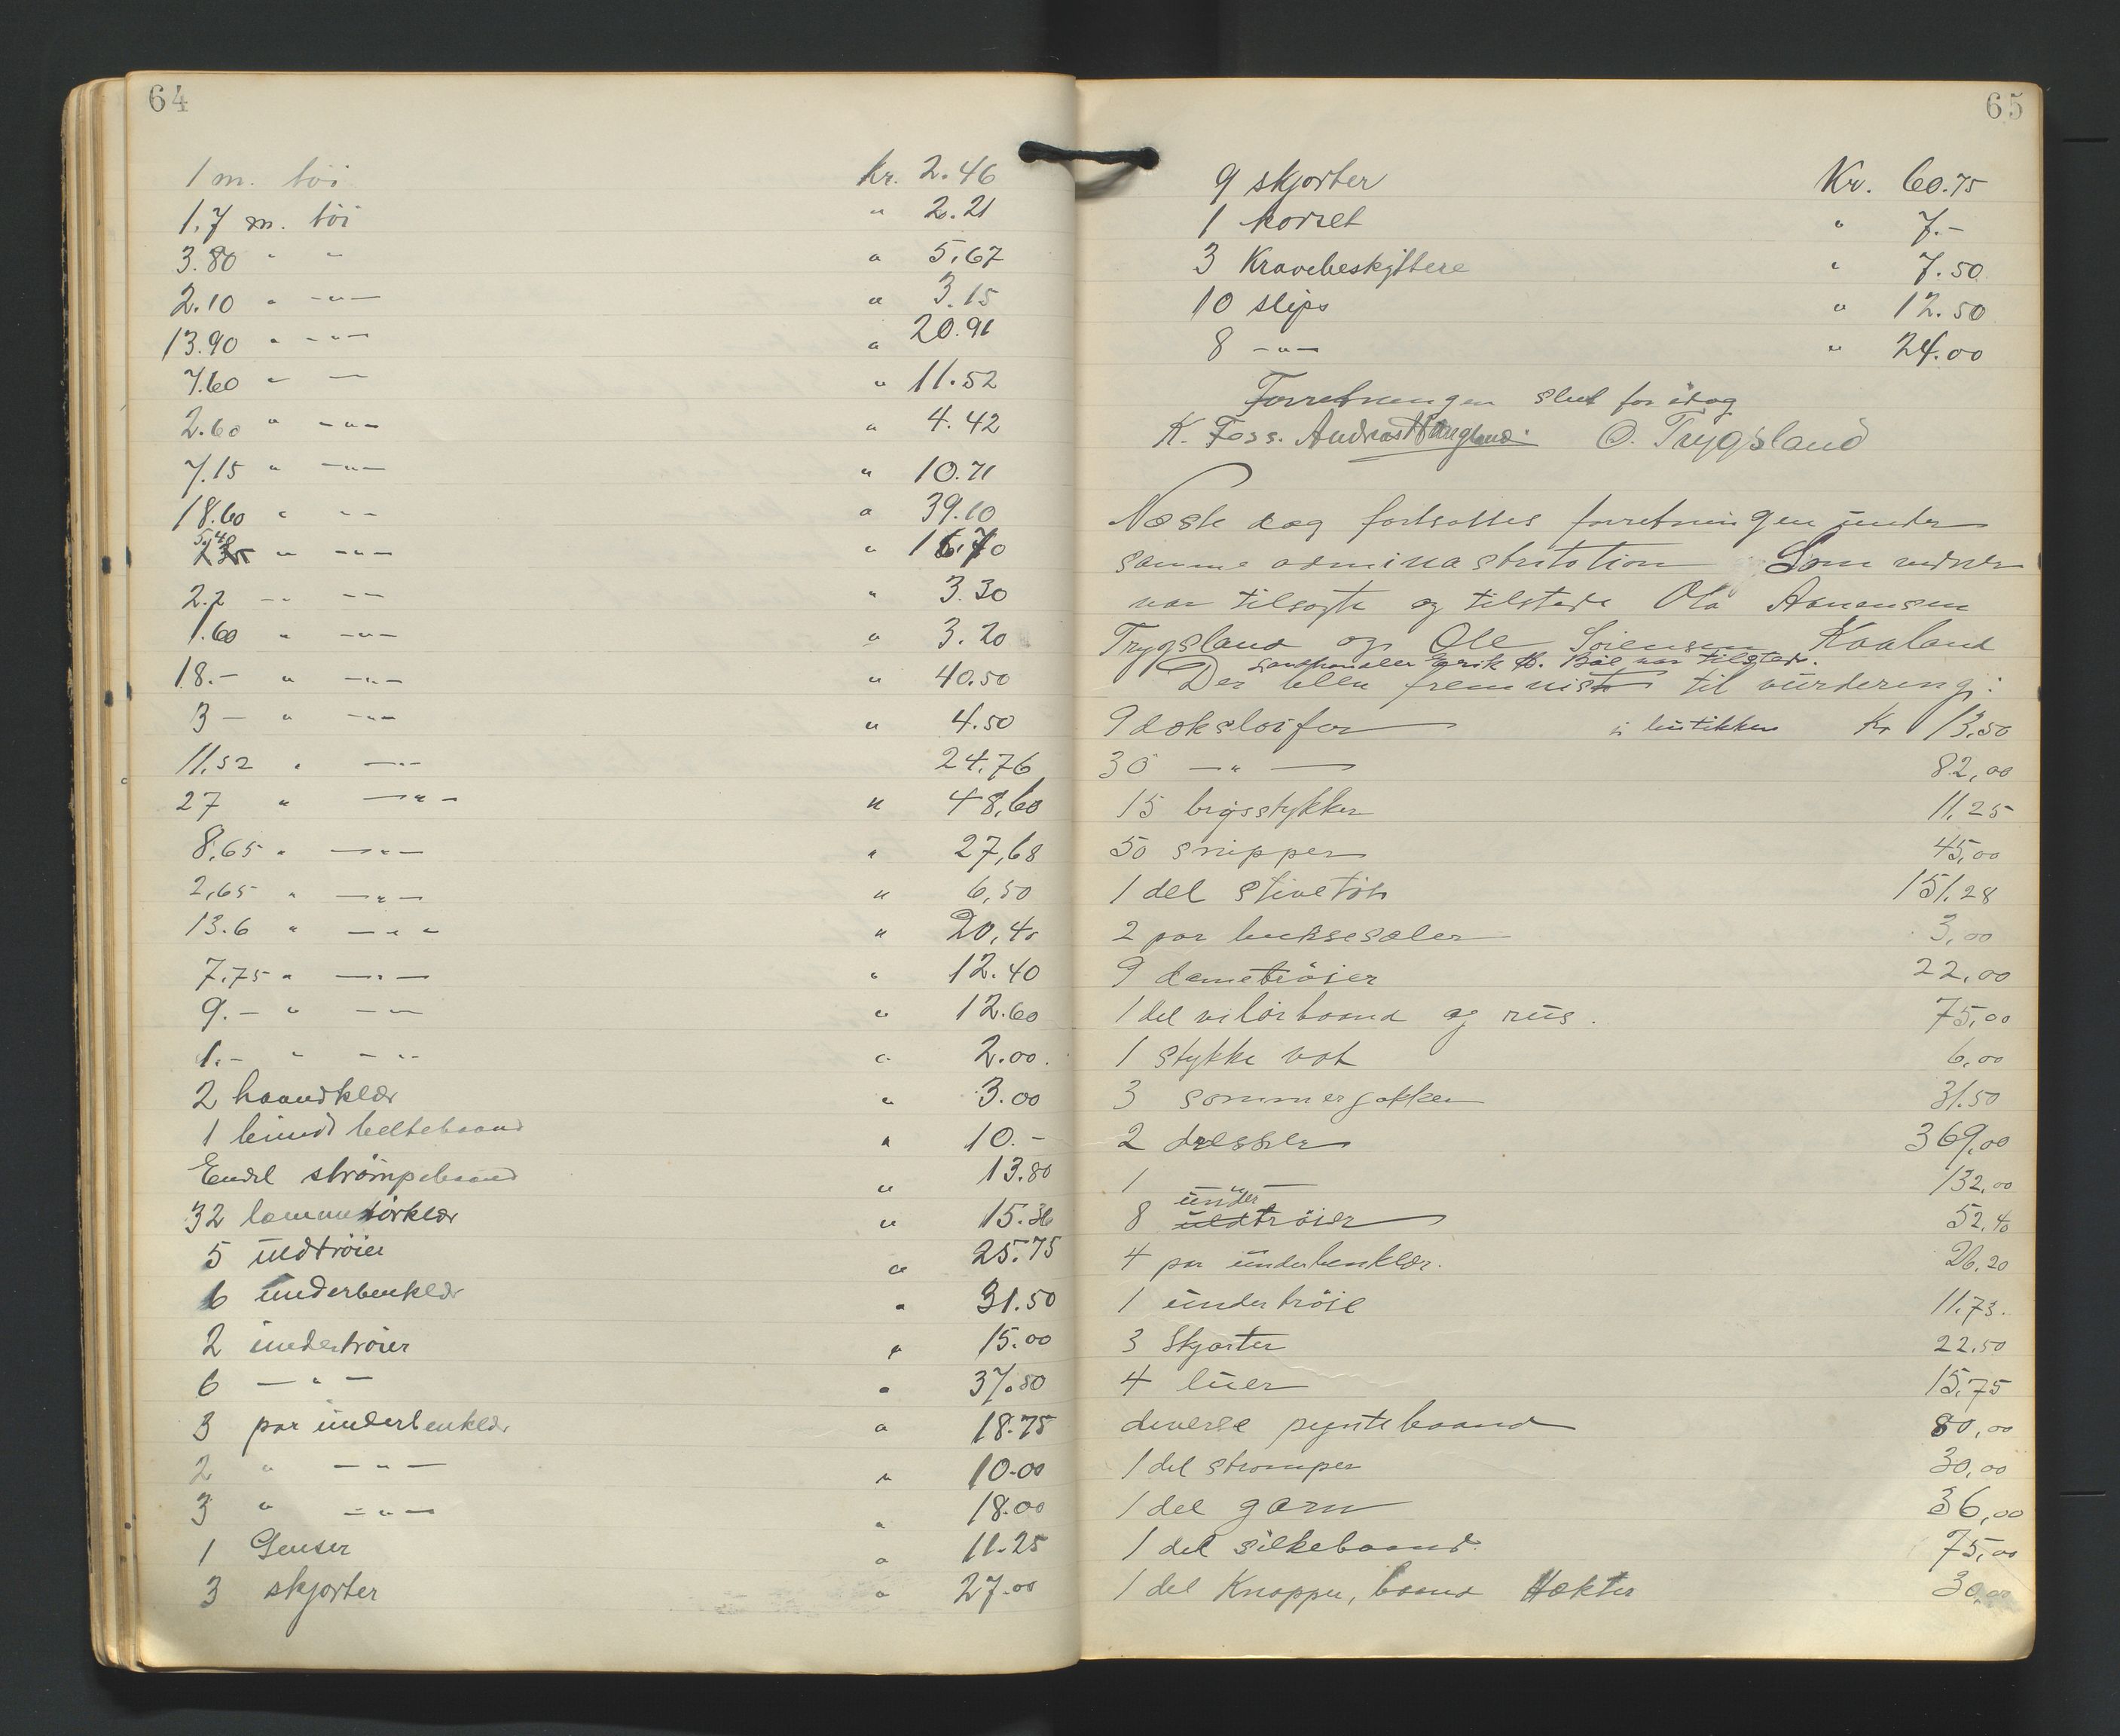 64
1 m. töi kr. 2.46
1,7 m. töi " 2.21
3.80 " " " 5,67
2.10 " —"— " 3.15
13.90 " —"— " 20.91
7.60 " — " 11.52
2.60 " —"— " 4.42
7.15 " —"— " 10.71
18.60 " —"— " 39.10
5,40 " —"— " 16,70
2.2 —" —"— " 3.30
1.60 " —"— " 3.20
18.- " —"— " 40.50
3 — " —"— " 4.50
11,52 " —"— 24,76
27 " —"— " 48,60
8,65 " —"— " 27,68
2,65 " —"— " 6,50
13.6 " —"— " 20,40
7,75 " —"— " 12.40
9.- " —"— " 12.60
1.- " —"— " 2.00.
2 haandklær " 3.00
1 bundt beltebaand " 10.-
Endel strömpebaand " 13.80
32 lommetörklær " 15.36
5 uldtröier " 25.75
6 underbenklær " 31.50
2 undertröier " 15.00
6 —"— " 37.50
3 par underbenklær " 18.75
2 " —"— " 10.00
3 " —"— " 18.00
1 Genser " 11.25
3 skjorter " 27.00
65
9 skjorter Kr. 60.75
1 korset " 7.-
3 Kravebeskyttere " 7.50
10 slips " 12.50
8 —"— " 24.00
Forretningen slut for idag
K. Foss. Andreas O. Trygsland
Næste dag fortsattes forretningen under
samme adminastrtation Som vidner
var tilsagte og tilstede Ola Asuensen
Trygsland og Ole Sörensen Kaaland
Landhandler Erik H. Bøe var tilstede.
Der blev fremvist til vurdering:
9 dokslöifer i butikken Kr 13,50
30 —"— 82,00
15 brysstykker 11,25
50 snipper 45,00
1 del stivetöi 151,28
2 par buksesæler 3,00
9 dametröier 22,00
1 del vilörbaand og rüs. 75,00
1 stykke vat 6,00
3 sommerjakker 31.50
2 dresser 369,00
1 —"— 132,00
under
8 uldtröier 52,40
4 par underbenklær. 26,20
1 undertröie 11,73.
3 Skjorter 22,50
4 luer 15,75
diverse pyntebaand 80,00
1 del strømper 30,00
1 del garn 36,00
1 del silkebaand 75,00
1 del Knapper, baand Hækter 30,00